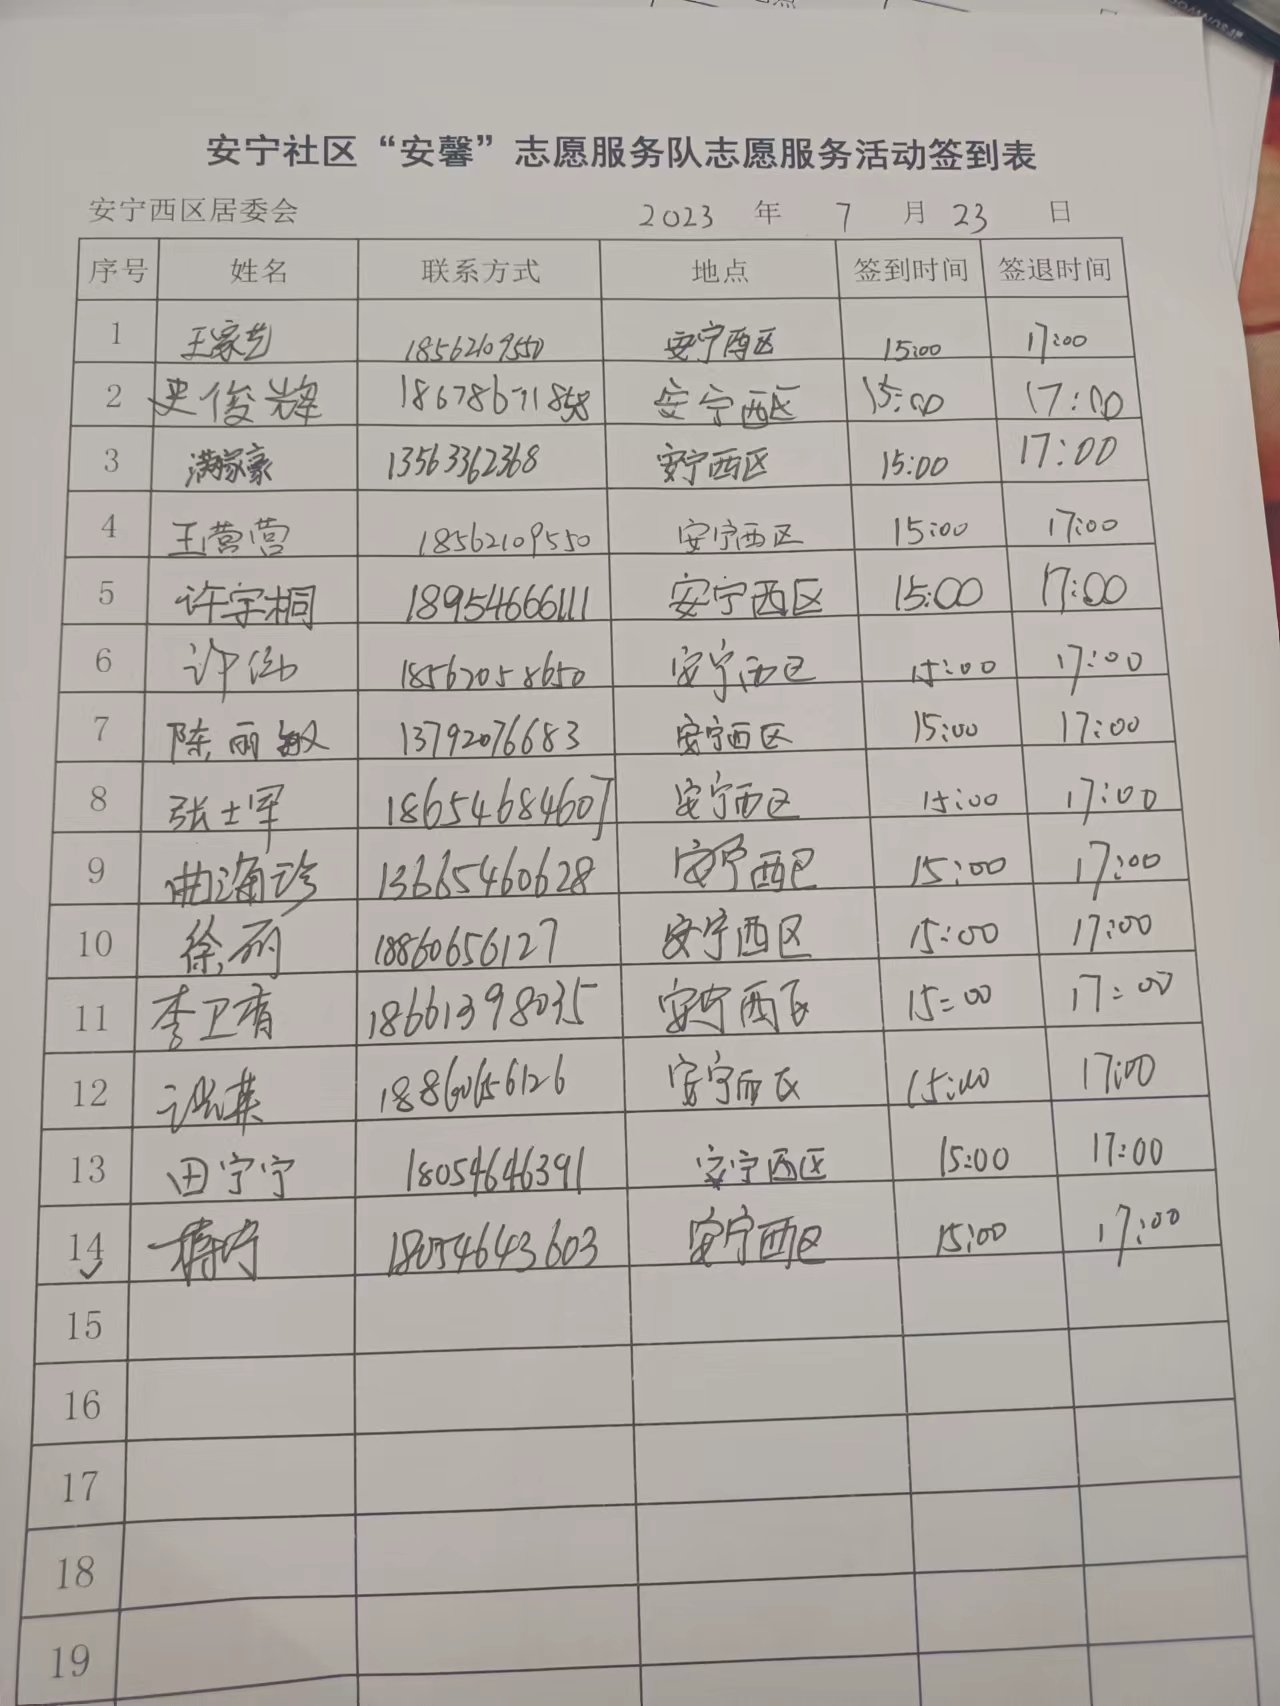 安宁社区“安馨”志愿服务队志愿服务活动签到表
安宁西区居委会 2023 年 7 月 23 日
序号 姓名 联系方式 地点 签到时间 签退时间
1 王家艺 18562109550 安宁西区 15:00 17:00
2 史俊辉 18678671858 安宁西区 15:00 17:00
3 满家豪 13563362368 安宁西区 15:00 17:00
4 王营营 18562109550 安宁西区 15:00 17:00
5 许宇桐 18954666111 安宁西区 15:00 17:00
6 许 18562058650 安宁西区 15:00 17:00
7 陈丽敏 13792076683 安宁西区 15:00 17:00
8 张士军 18654684607 安宁西区 15:00 17:00
9 曲海珍 13665460628 安宁西区 15:00 17:00
10 徐丽 18860656127 安宁西区 15:00 17:00
11 李卫青 18661398035 安宁西区 15:00 17:00
12 英 18860656126 安宁西区 15:00 17:00
13 田宁宁 18054646391 安宁西区 15:00 17:00
14 18054643603 安宁西区 15:00 17:00
15
16
17
18
19